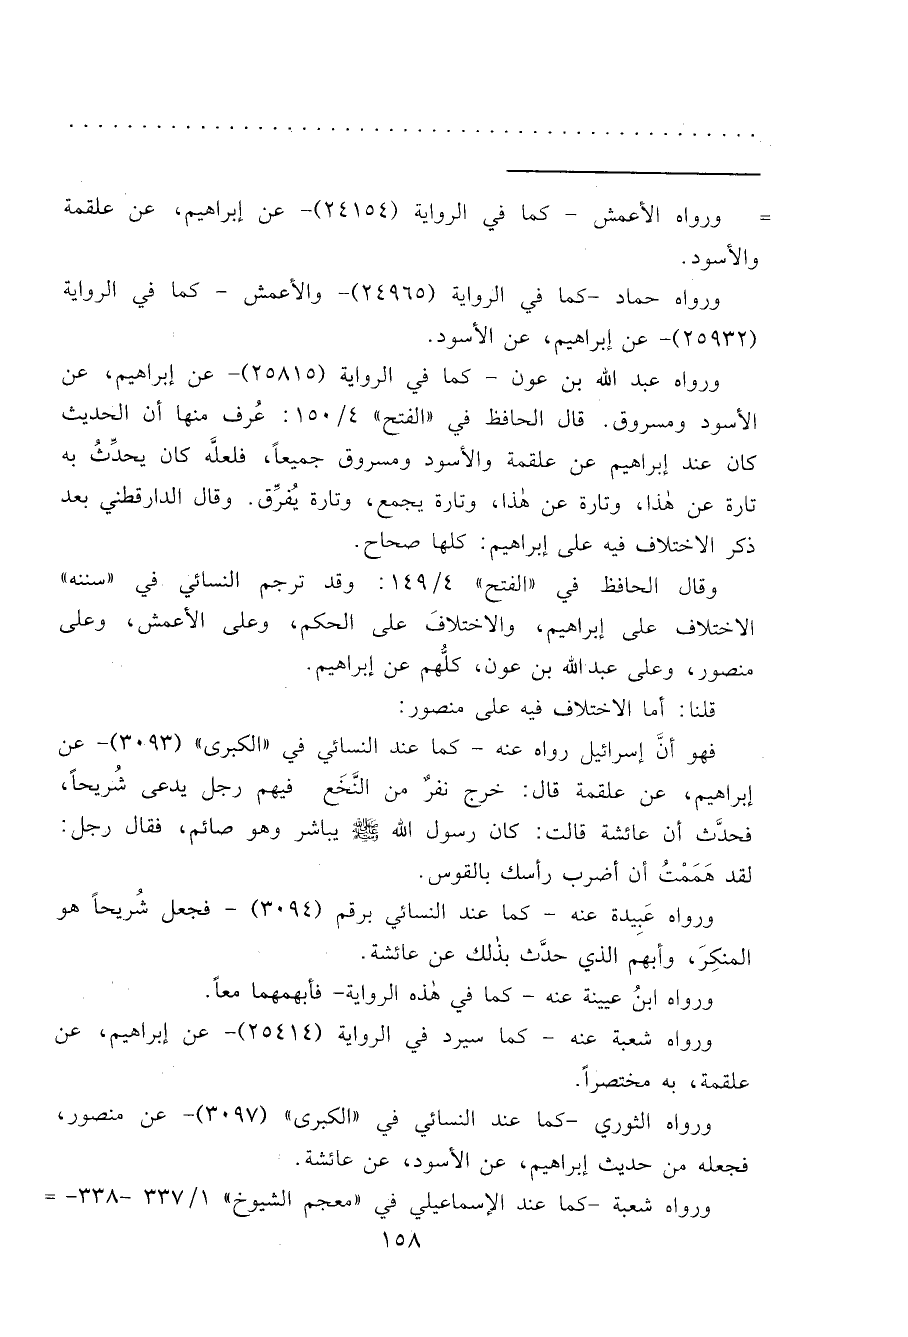 = ورواه الأعمش - كما في الرواية (٢٤١٥٤)- عن إبراهيم، عن علقمة
والأسود.
ورواه حماد -كما في الرواية (٢٤٩٦٥)- والأعمش - كما في الرواية
(٢٥٩٣٢)- عن إبراهيم، عن الأسود.
ورواه عبد الله بن عون - كما في الرواية (٢٥٨١٥)- عن إبراهيم، عن
الأسود ومسروق. قال الحافظ في «الفتح» ١٥٠/٤: عُرف منها أن الحديث
كان عند إبراهيم عن علقمة والأسود ومسروق جميعاً، فلعله كان يحدِّثُ به
تارة عن هٰذا، وتارة عن هٰذا، وتارة يجمع، وتارة يُفرِّق. وقال الدارقطني بعد
ذكر الاختلاف فيه على إبراهيم: كلها صحاح.
وقال الحافظ في «الفتح» ١٤٩/٤: وقد ترجم النسائي في «سننه»
الاختلاف على إبراهيم، والاختلافَ على الحكم، وعلى الأعمش، وعلى
منصور، وعلى عبد الله بن عون، كلُّهم عن إبراهيم.
قلنا: أما الاختلاف فيه على منصور:
فهو أنَّ إسرائيل رواه عنه - كما عند النسائي في «الكبرى» (٣٠٩٣)- عن
إبراهيم، عن علقمة قال: خرج نفرٌ من النَّخَع فيهم رجل يدعى شُريحاً،
فحدَّث أن عائشة قالت: كان رسول الله ﷺ يباشر وهو صائم، فقال رجل:
لقد هَمَمْتُ أن أضرب رأسك بالقوس.
ورواه عَبِيدة عنه - كما عند النسائي برقم (٣٠٩٤) - فجعل شُريحاً هو
المنكِرَ، وأبهم الذي حدَّث بذٰلك عن عائشة.
ورواه ابنُ عيينة عنه - كما في هٰذه الرواية- فأبهمهما معاً.
ورواه شعبة عنه - كما سيرد في الرواية (٢٥٤١٤)- عن إبراهيم، عن
علقمة، به مختصراً.
ورواه الثوري -كما عند النسائي في «الكبرى» (٣٠٩٧)- عن منصور،
فجعله من حديث إبراهيم، عن الأسود، عن عائشة.
ورواه شعبة -كما عند الإسماعيلي في «معجم الشيوخ» ٣٣٧/١ -٣٣٨- =
١٥٨